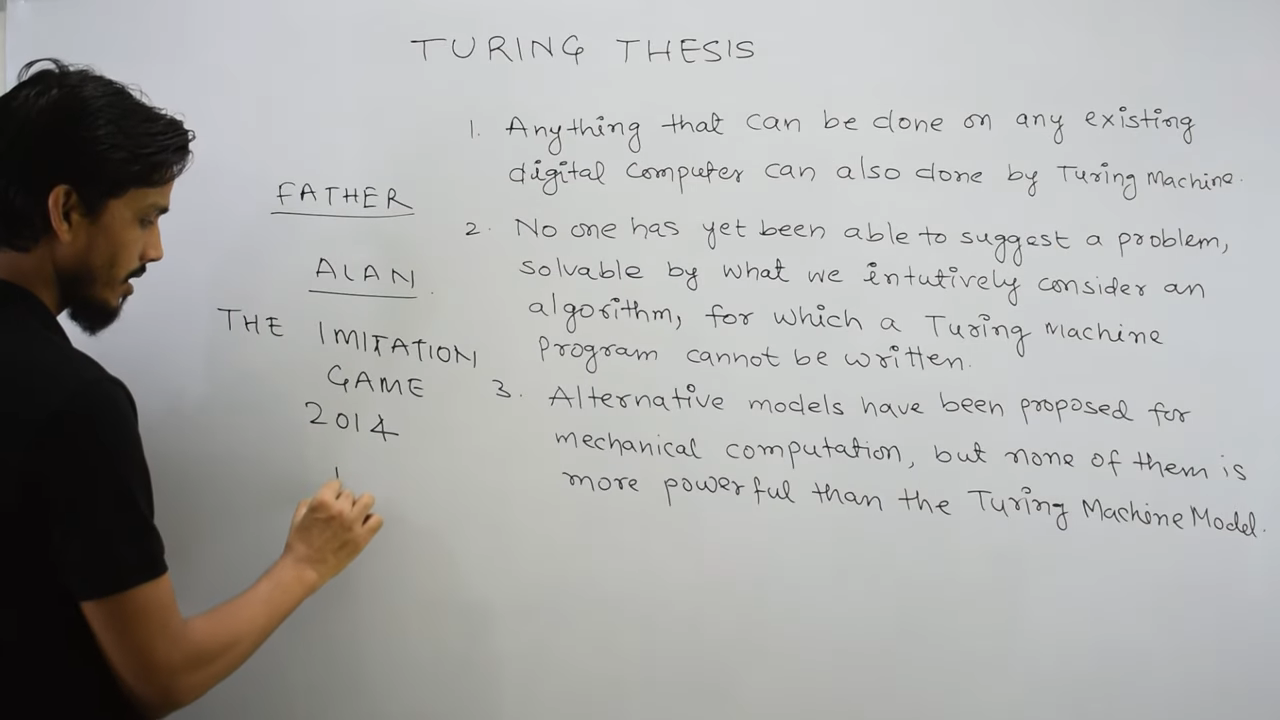 TURING THESIS
1. Anything that can be done on any existing
digital computer can also done by Turing Machine.
2. No one has yet been able to suggest a problem,
solvable by what we intutively consider an
algorithm, for which a Turing Machine
Program cannot be written.
3. Alternative models have been proposed for
mechanical computation, but none of them is
more powerful than the Turing Machine Model.
FATHER
ALAN
THE IMITATION
GAME
2014